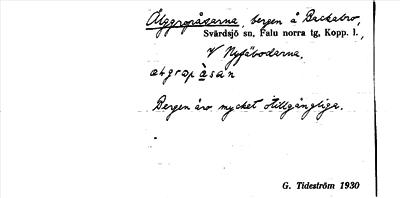 Älggropåsarna, bergen å Backabro,
Svärdsjö sn, Falu norra tg, Kopp. l.,
V Nyfäbodarna.
Bergen äro mycket otillgängliga.
G. Tideström 1930